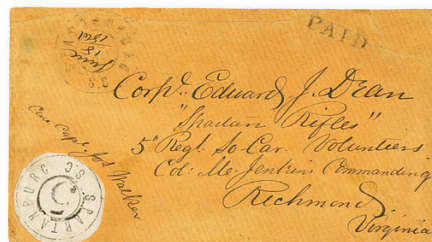 PAID
June
18
1861
Corpl. Edward J. Dean
"Spartan Rifles"
5" Regt. So. Car. Volunteers
Col: M. Jenkins Commanding
Richmond
Virginia
Care Capt. Jos Walker
SPARTANBURG SC
5